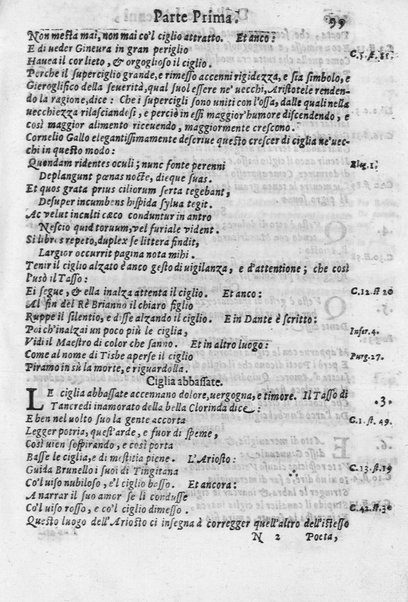 Parte Prima. 99
Non mesta mai, non mai co'l ciglio attratto. Et anco:
E di ueder Gineura in gran periglio C.5. st. 81.
Hauea il cor lieto, & orgoglioso il ciglio.
Perche il superciglio grande, e rimesso accenni rigidezza, e sia simbolo, e
Gieroglifico della seuerità, qual suol essere ne' uecchi, Aristotele renden-
do la ragione, dice: Che i supercigli sono uniti con l'ossa, dalle quali nella
uecchiezza rilasciandosi, e perciò in essi maggior'humore discendendo, e
così maggior alimento riceuendo, maggiormente crescono.
Cornelio Gallo elegantissimamente descriue questo crescer di ciglia ne'uec-
chi in questo modo:
Quondam ridentes oculi; nunc fonte perenni Eleg. 1.
Deplangunt pœnas nocte, dieque suas.
Et quos grata prius ciliorum serta tegebant,
Desuper incumbens hispida sylua tegit.
Ac velut inculti cæco conduntur in antro
Nescio quid toruum, vel furiale vident.
Si libros repeto, duplex se littera findit,
Largior occurrit pagina nota mihi.
Tenir il ciglio alzato è anco gesto di uigilanza, e d'attentione; che così
l'usò il Tasso:
Ei segue, & ella inalza attenta il ciglio. Et anco: C.12. st 20
Al fin del Rè Brianno il chiaro figlio
Ruppe il silentio, e disse alzando il ciglio. E in Dante è scritto:
Poi ch'inalzai un poco più le ciglia, Infer. 4.
Vidi il Maestro di color che sanno. Et in altro luogo:
Come al nome di Tisbe aperse il ciglio Purg. 27.
Piramo in sù la morte, e riguardolla.
Ciglia abbassate.
LE ciglia abbassate accennano dolore, uergogna, e timore. Il Tasso di .3.
Tancredi inamorato della bella Clorinda dice:
E ben nel uolto suo la gente accorta C.1. st. 49.
Legger potria, quest'arde, e fuor di speme,
Così uien sospirando, e così porta
Basse le ciglia, e di mestitia piene. L'Ariosto:
Guida Brunello i suoi di Tingitana C.13. st. 19
Co'l uiso nubiloso, e'l ciglio basso. Et ancora:
A narrar il suo amor se li condusse C.42. st. 30
Co'l uiso rosso, e co'l ciglio dimesso.
Questo luogo dell'Ariosto ci insegna à correger quell'altro dell'istesso
N 2 Poeta,